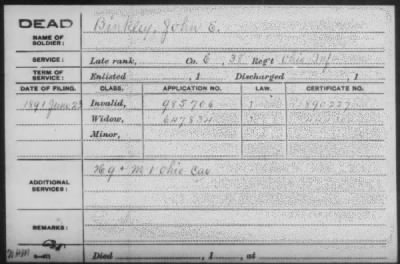 DEAD
NAME OF SOLDIER:
Binkley, John E.
SERVICE:
Late rank, Co. E, 38 Reg't Ohio Inf
TERM OF SERVICE:
Enlisted , 1 Discharged , 1
DATE OF FILING. CLASS. APPLICATION NO. LAW. CERTIFICATE NO.
1891 June 23 Invalid, 985706 890227
Widow, 647834
Minor,
ADDITIONAL SERVICES:
H G + M 1 Ohio Cav
REMARKS:
Died , 1 , at